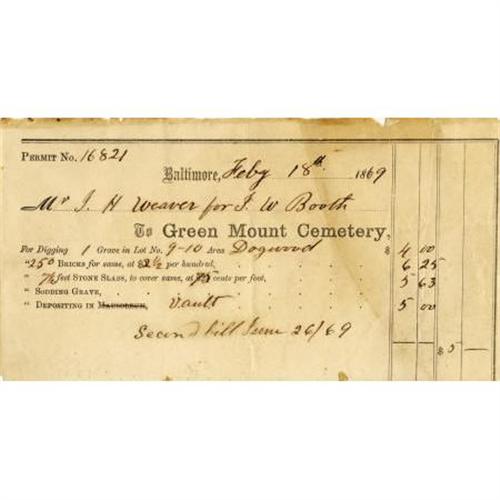 PERMIT No. 16821
Baltimore, Feby 18th 1869
Mr J. H Weaver for J. W Booth
To Green Mount Cemetery,
For Digging 1 Grave in Lot No. 9-10 Area Dogwood $ 4 00
" 250 BRICKS for same, at 2½ per hundred, 6 25
" 7½ feet STONE SLABS, to cover same, at 75 cents per foot, 5 63
" SODDING GRAVE,
" DEPOSITING IN MAUSOLEUM, Vault 5 00
Second bill June 26/69
$ 5